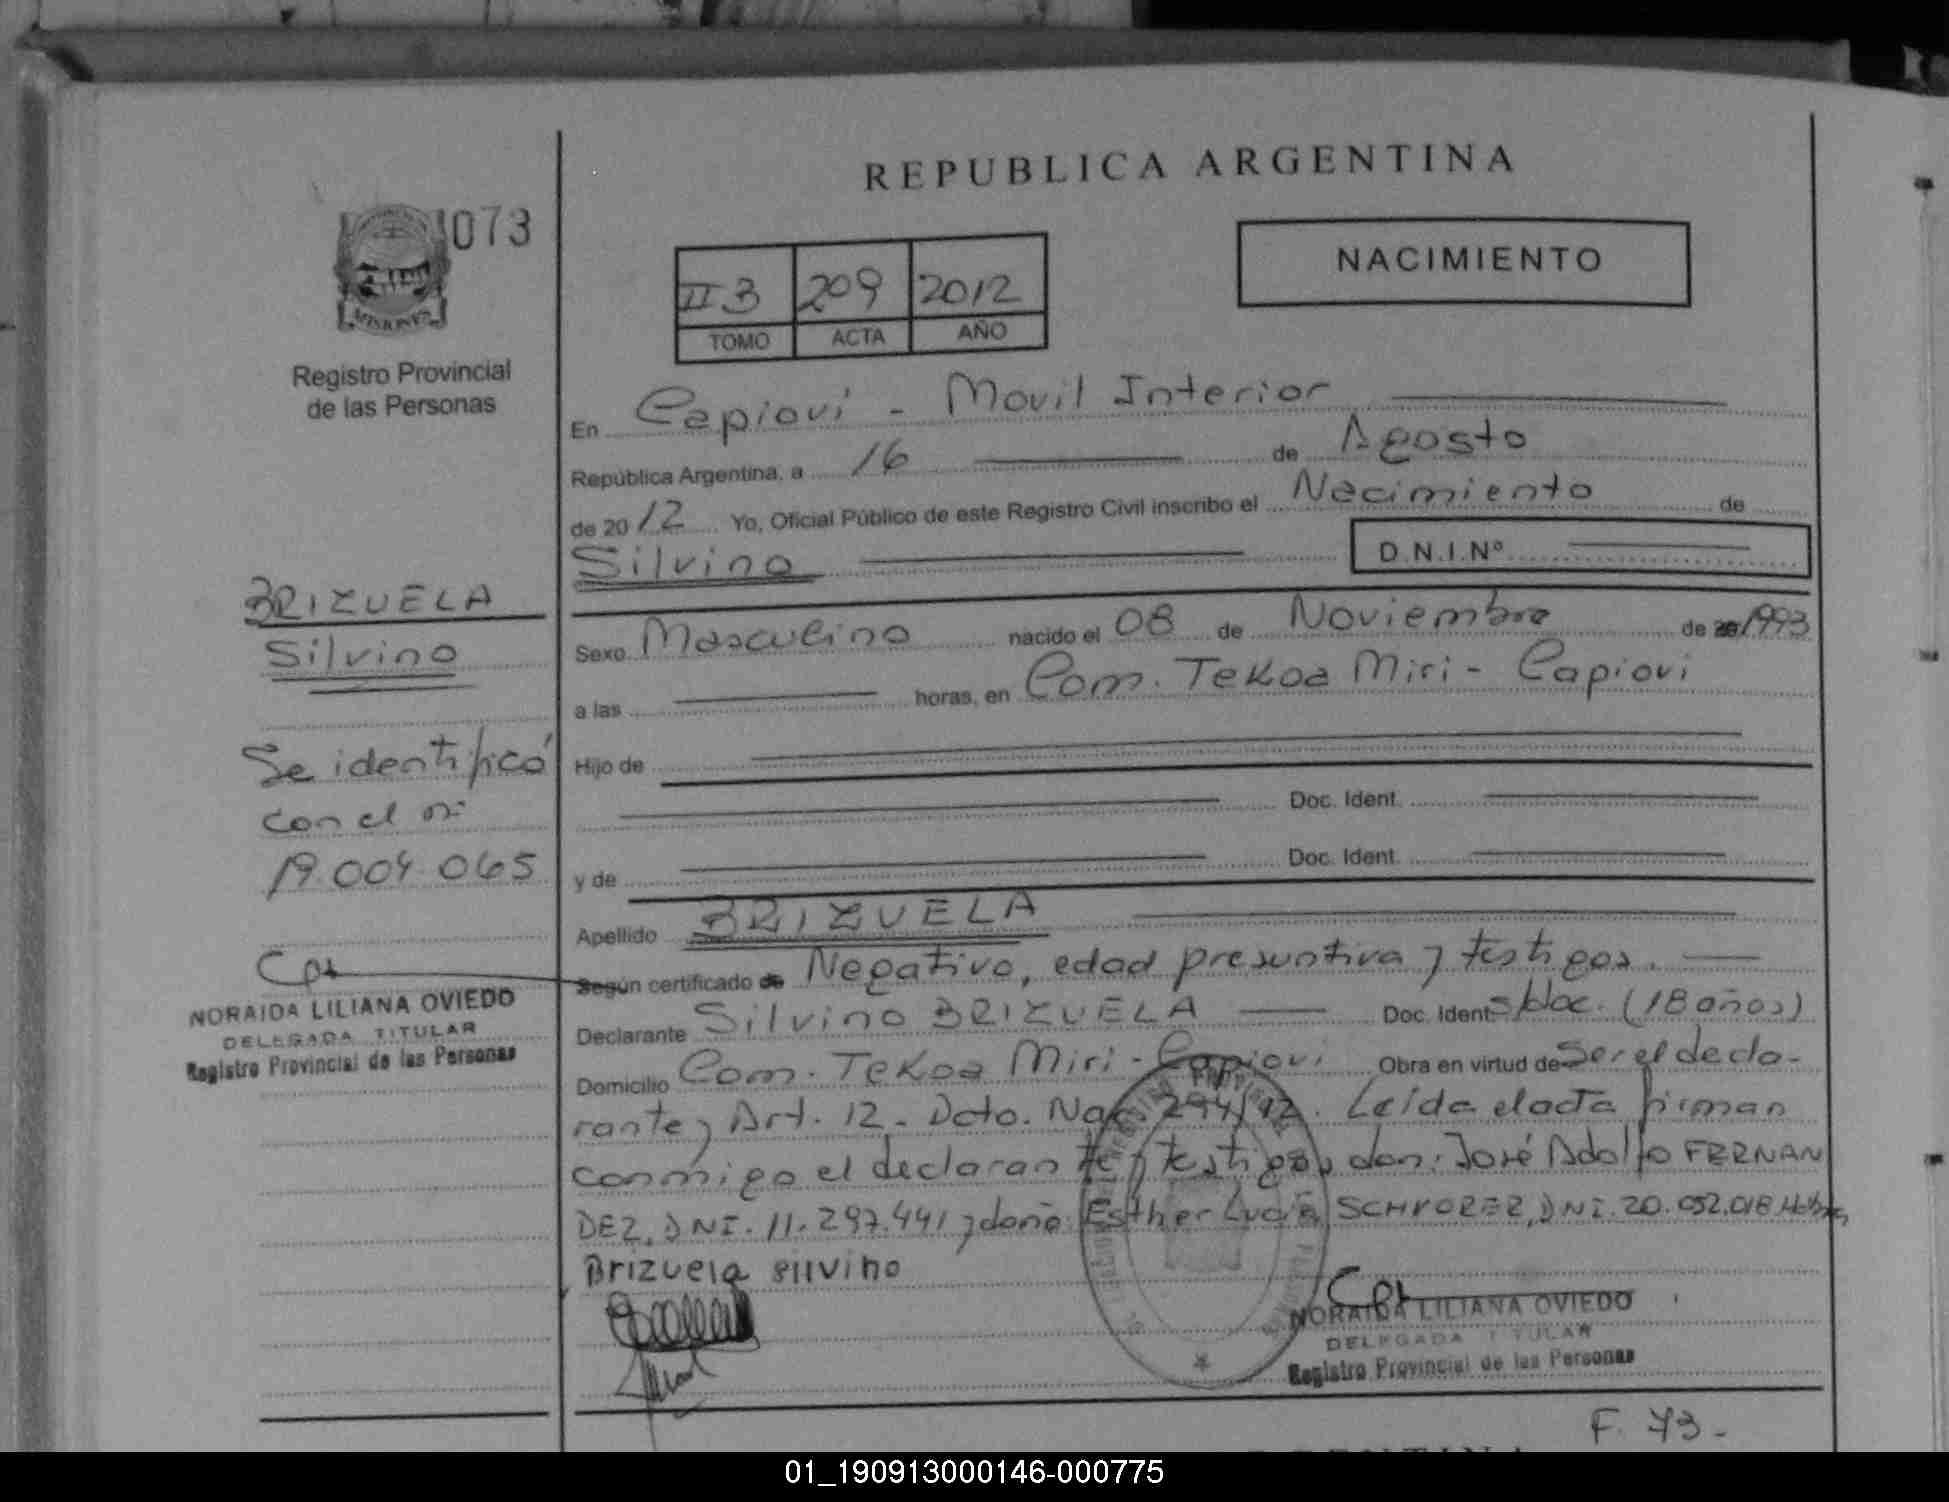 REPUBLICA ARGENTINA
073
MISIONES
Registro Provincial
de las Personas
NACIMIENTO
II B 209 2012
TOMO ACTA AÑO
En Capioví - Movil Interior
República Argentina, a 16 de Agosto
de 2012 Yo, Oficial Público de este Registro Civil inscribo el Nacimiento de
Silvino D.N.I.Nº
BRIZUELA
Silvino
Se identificó
con el nº
19.004.065
NORAIDA LILIANA OVIEDO
DELEGADA TITULAR
Registro Provincial de las Personas
Sexo Masculino nacido el 08 de Noviembre de 1993
a las horas, en Com. Tekoa Miri - Capiovi
Hijo de
Doc. Ident.
y de Doc. Ident.
Apellido BRIZUELA
Según certificado de Negativo, edad presuntiva y testigos.
Declarante Silvino BRIZUELA Doc. Ident. s/doc. (18 años)
Domicilio Com. Tekoa Miri - Capiovi Obra en virtud de Ser el decla-
rante y Art. 12 - Dcto. Nac. 294/12. Leída el acta firman
conmigo el declarante y testigos don: José Adolfo FERNAN
DEZ, DNI. 11.297.441 y doña: Esther Lucia DNI. 20.052.018
Brizuela silvino
NORAIDA LILIANA OVIEDO
DELEGADA TITULAR
Registro Provincial de las Personas
F. 73-
01_190913000146-000775